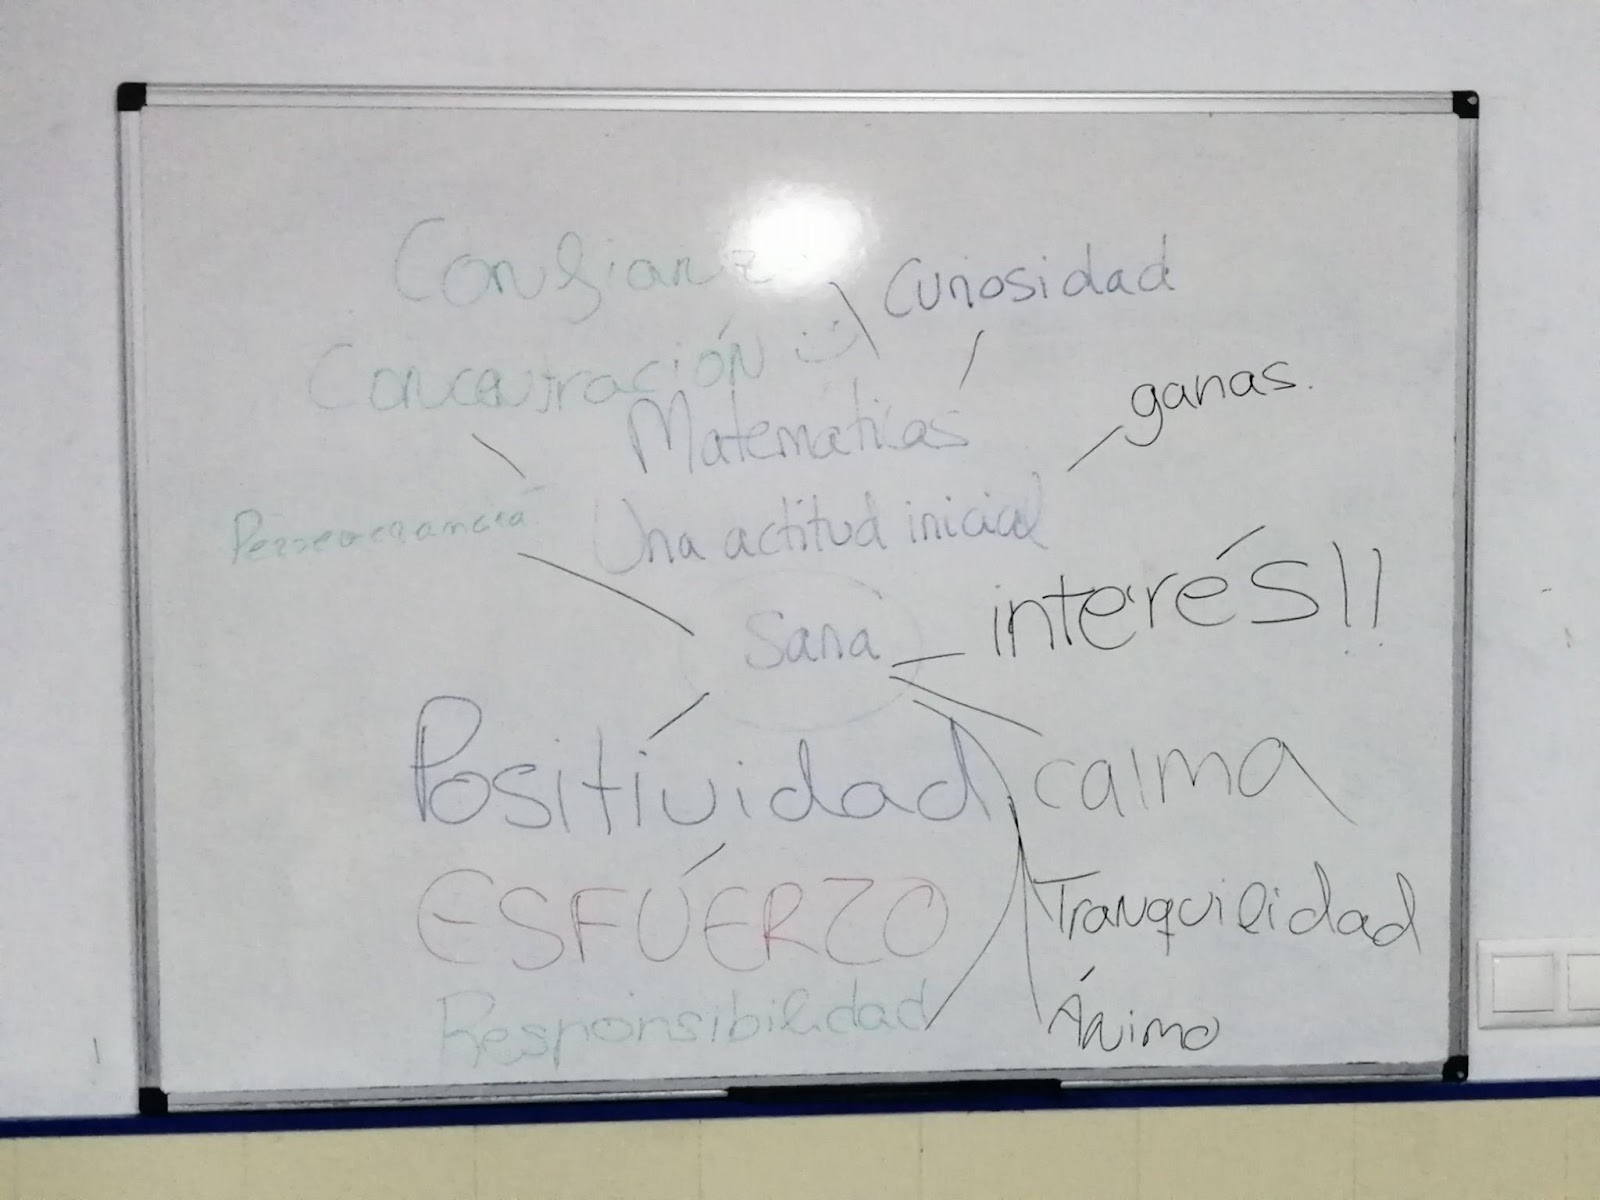 Confianz
Curiosidad
Concentración :)
ganas.
Matemáticas
Perseverancia
Una actitud inicial
interés!!
Sana
Positividad
calma
ESFÚERZO
Tranquilidad
Responsibilidad
Ánimo